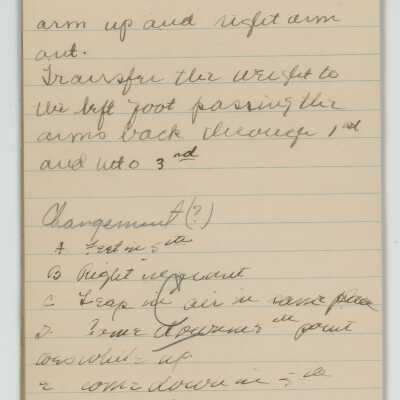 arm up and right arm
out.
Transfer the weight to
the left foot passing the
arms back through 1st
and into 3rd
Changement (?)
A Feet in 5th
B Right in front
C Leap in air in same place
D. down in point
up
E come down in 5th